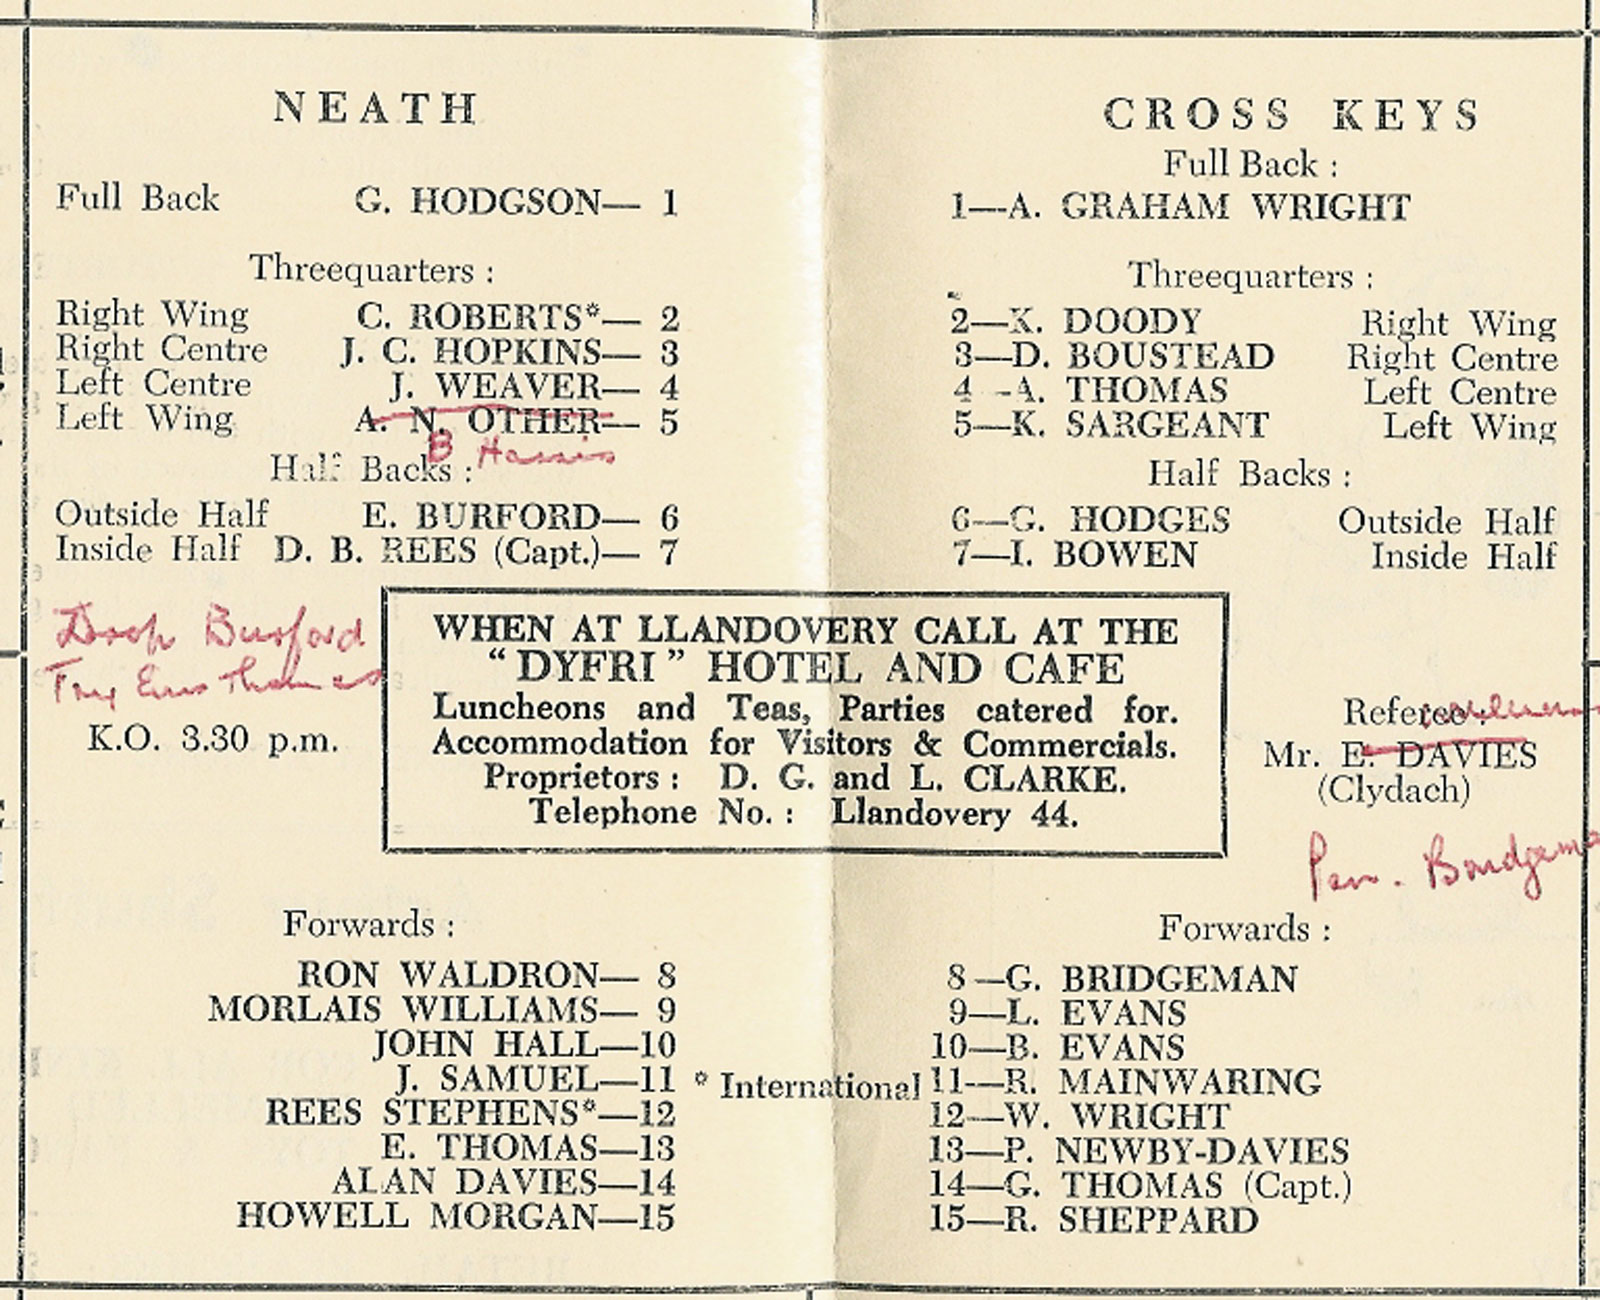 NEATH
Full Back G. HODGSON— 1
Threequarters :
Right Wing C. ROBERTS*— 2
Right Centre J. C. HOPKINS— 3
Left Centre J. WEAVER— 4
Left Wing A. N. OTHER— 5
B Harris
Half Backs :
Outside Half E. BURFORD— 6
Inside Half D. B. REES (Capt.)— 7
Drop Burford
Try Emrys Thomas
K.O. 3.30 p.m.
CROSS KEYS
Full Back :
1—A. GRAHAM WRIGHT
Threequarters :
2—K. DOODY Right Wing
3—D. BOUSTEAD Right Centre
4—A. THOMAS Left Centre
5—K. SARGEANT Left Wing
Half Backs :
6—G. HODGES Outside Half
7—I. BOWEN Inside Half
WHEN AT LLANDOVERY CALL AT THE
“DYFRI” HOTEL AND CAFE
Luncheons and Teas, Parties catered for.
Accommodation for Visitors & Commercials.
Proprietors : D. G. and L. CLARKE.
Telephone No. : Llandovery 44.
Referee :
Mr. E. DAVIES
(Clydach)
Pen. Bridgeman
Forwards :
RON WALDRON— 8
MORLAIS WILLIAMS— 9
JOHN HALL—10
J. SAMUEL—11
REES STEPHENS*—12
E. THOMAS—13
ALAN DAVIES—14
HOWELL MORGAN—15
* International
Forwards :
8—G. BRIDGEMAN
9—L. EVANS
10—B. EVANS
11—R. MAINWARING
12—W. WRIGHT
13—P. NEWBY-DAVIES
14—G. THOMAS (Capt.)
15—R. SHEPPARD